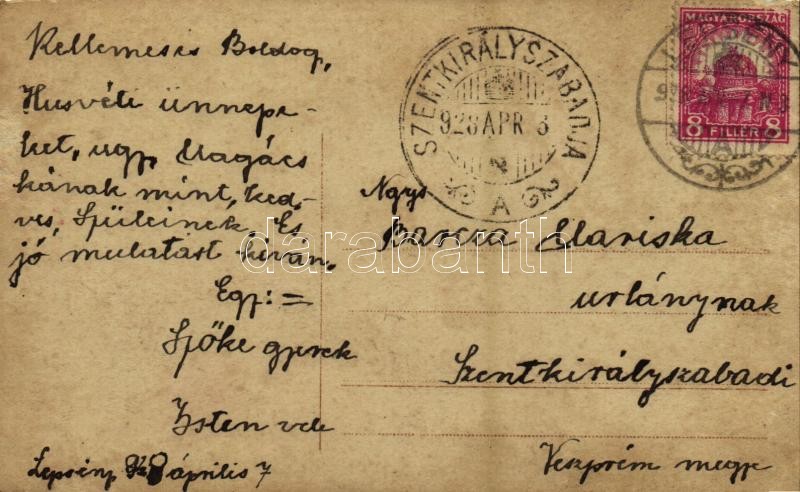 Kellemes és Boldog,
Husvéti ünnepe-
ket, ugy, Magács
kának mint, ked-
ves, Szüleinek. És
jó mulatást kíván.
Egy: =
Szőke gyerek
Isten vele
Lepsény 928 április 7
SZENTKIRÁLYSZABADJA
928 APR 8
A
MAGYARORSZÁG
8 FILLÉR 8
Ngys
Barcza Mariska
urlánynak
Szentkirályszabadi
Veszprém megye
darabanth